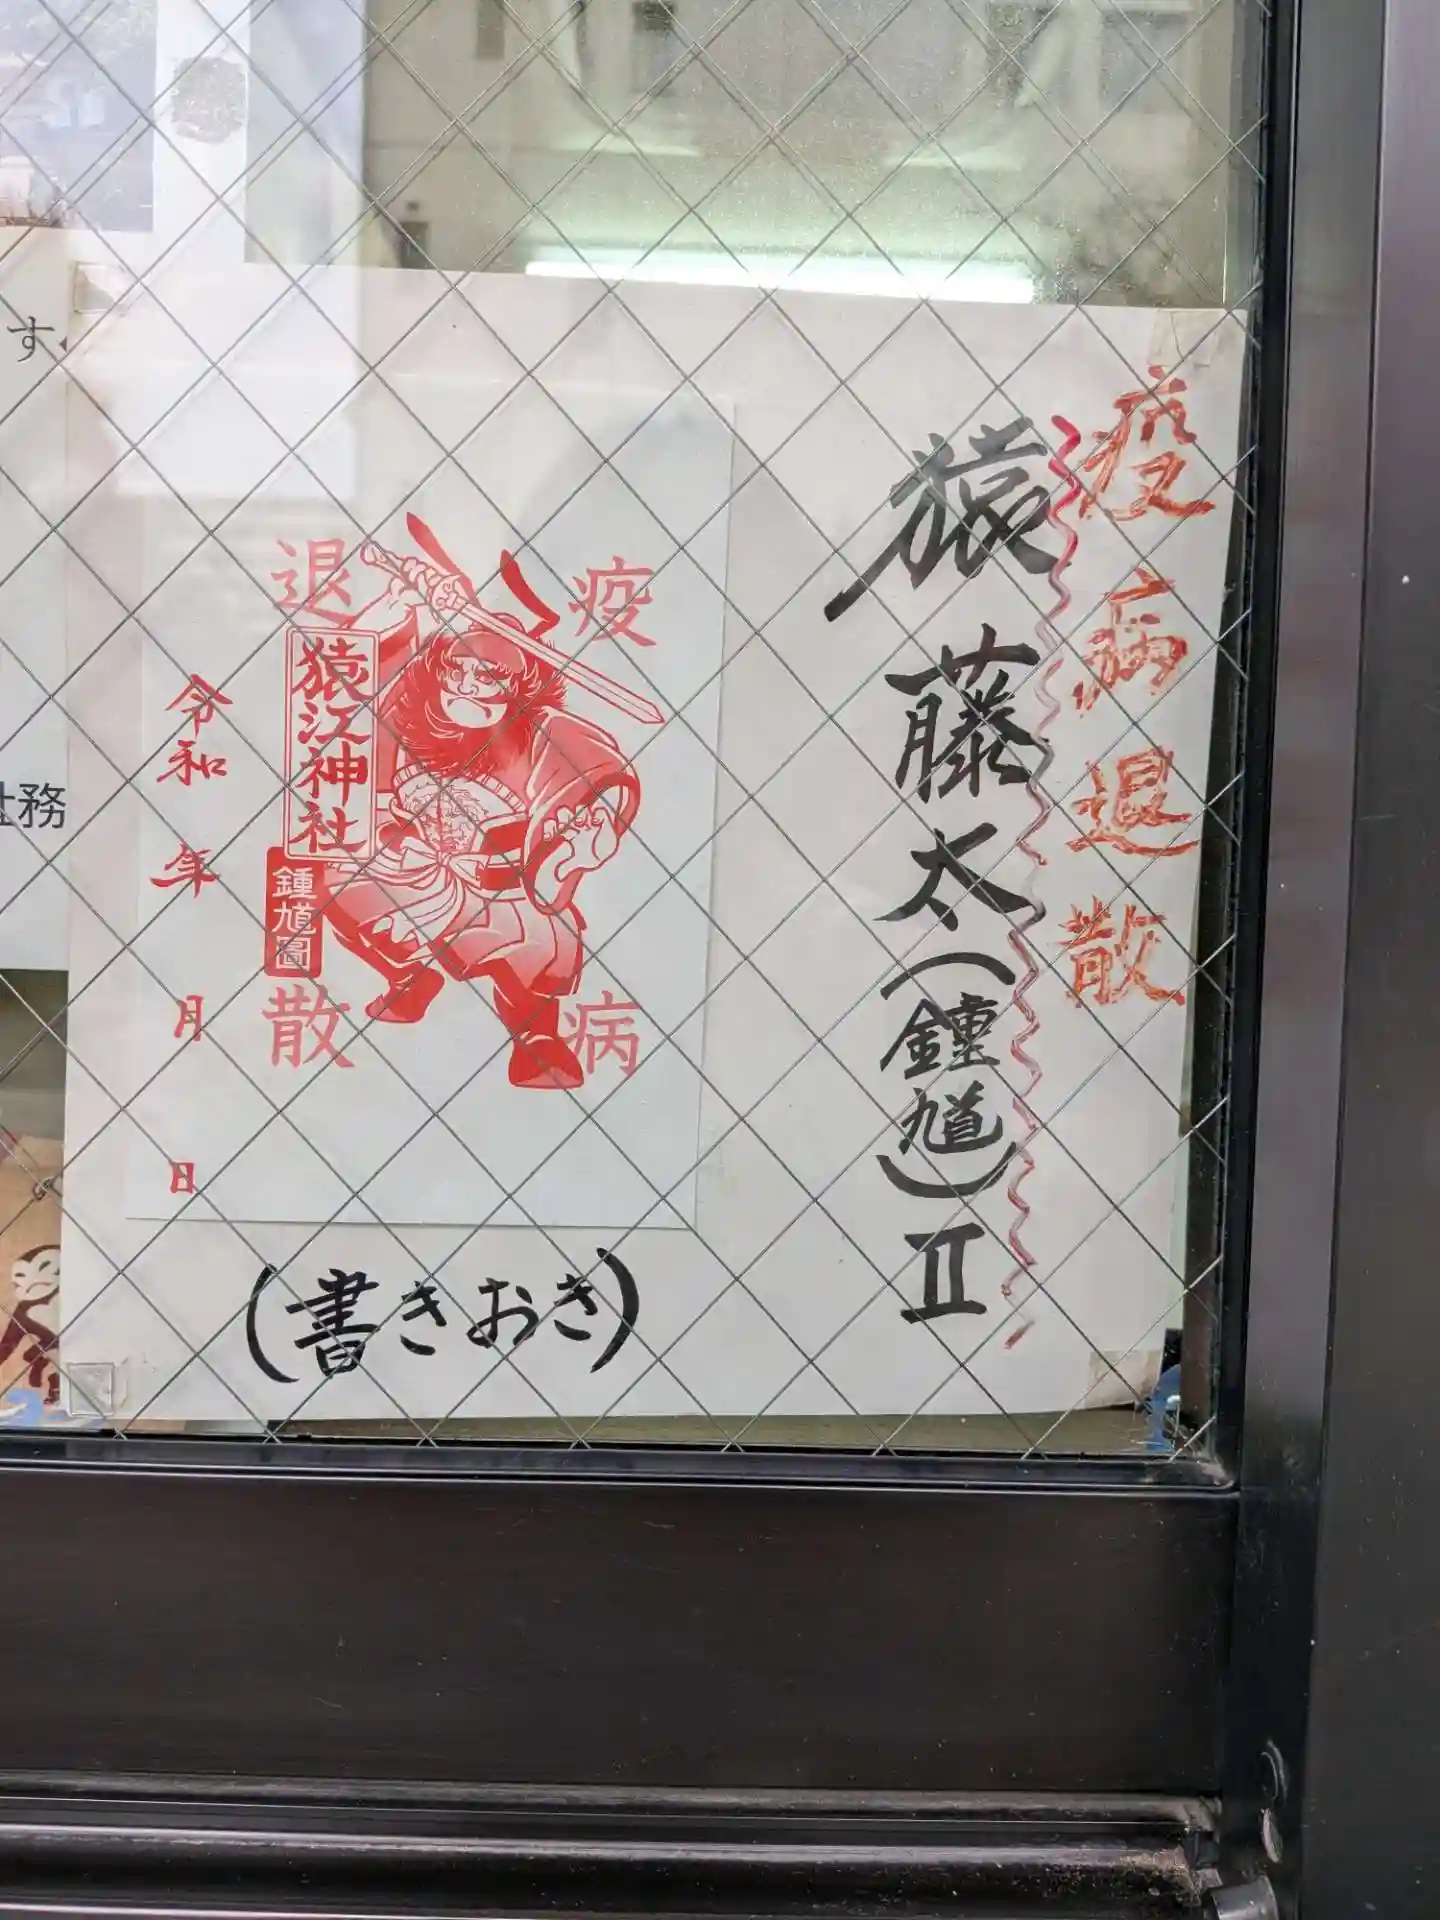 疫病退散
猿藤太(鍾馗)Ⅱ
疫
病
退
散
猿江神社
鍾馗圖
令和 年 月 日
(書きおき)
す
社務